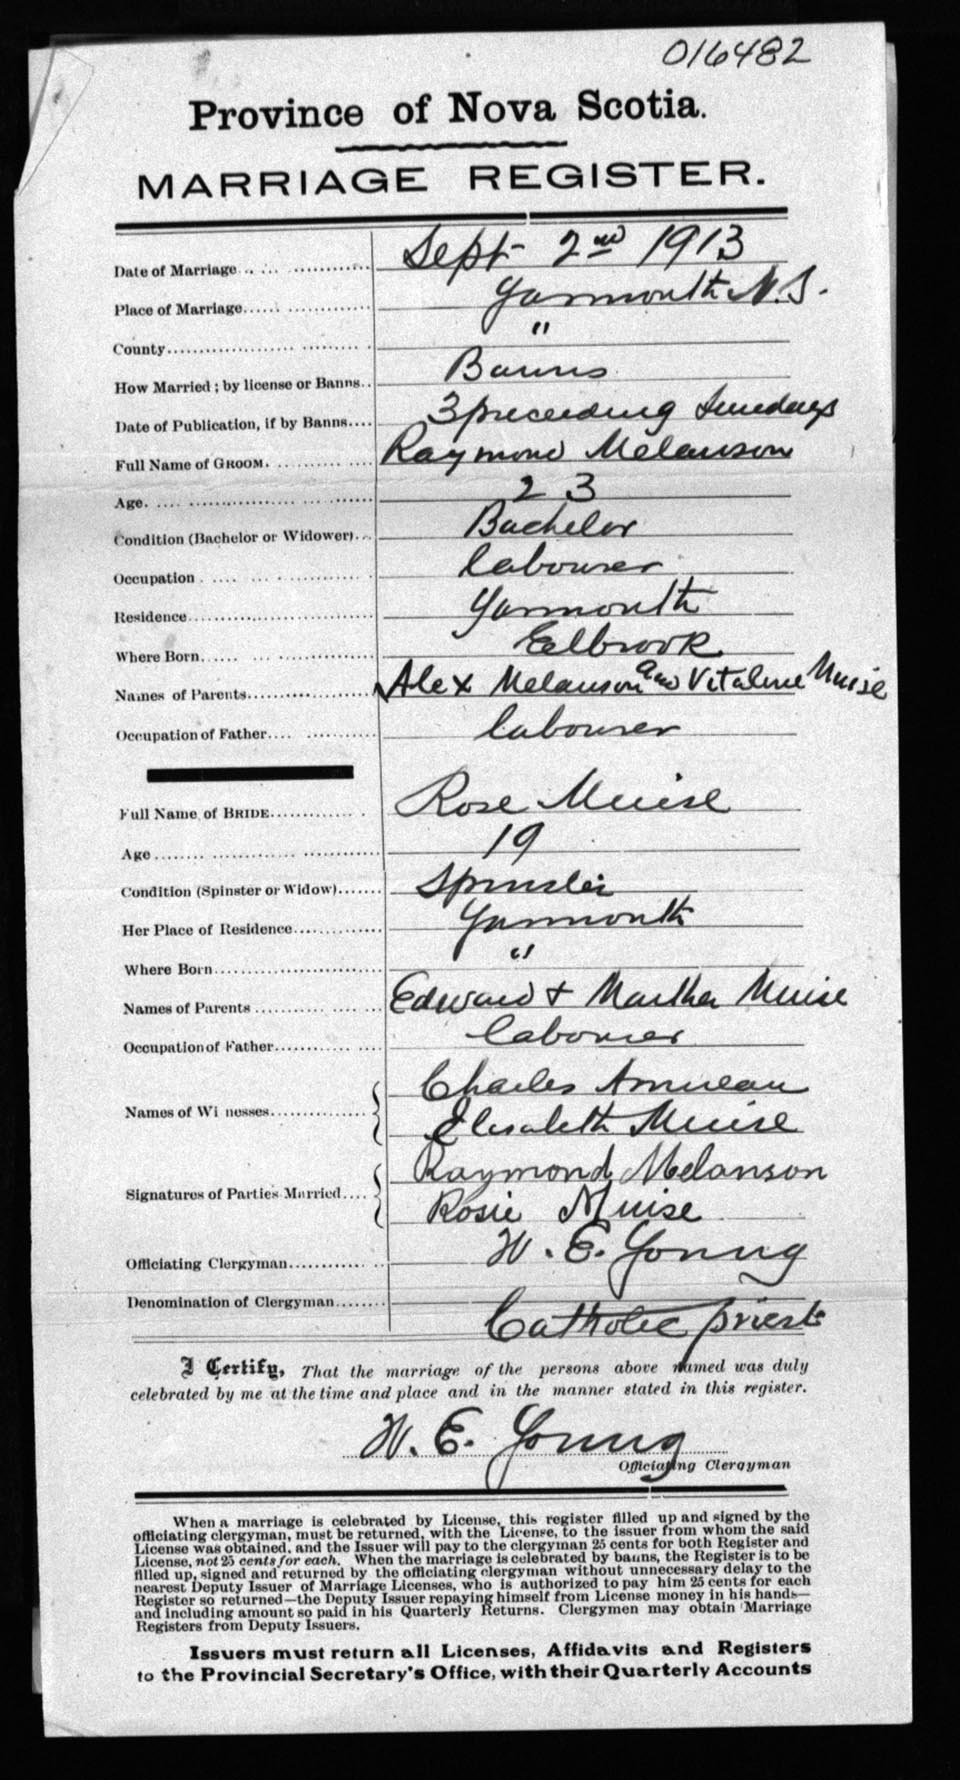 016482
Province of Nova Scotia.
MARRIAGE REGISTER.
Date of Marriage Sept 2nd 1913
Place of Marriage Yarmouth N.S.
County "
How Married; by license or Banns Banns
Date of Publication, if by Banns 3 preceeding Sundays
Full Name of GROOM Raymond Melanson
Age 23
Condition (Bachelor or Widower) Bachelor
Occupation labourer
Residence Yarmouth
Where Born Eelbrook
Names of Parents Alex Melanson and Vitaline Muise
Occupation of Father labourer
Full Name of BRIDE Rose Muise
Age 19
Condition (Spinster or Widow) Spinster
Her Place of Residence Yarmouth
Where Born "
Names of Parents Edward + Martha Muise
Occupation of Father labourer
Charles Amireau
Names of Wi nesses
Elisabeth Muise
Raymond Melanson
Signatures of Parties Married
Rosie Muise
Officiating Clergyman W. E. Young
Denomination of Clergyman Catholic priest
I Certify, That the marriage of the persons above named was duly
celebrated by me at the time and place and in the manner stated in this register.
W. E. Young
Officiating Clergyman
When a marriage is celebrated by License, this register filled up and signed by the
officiating clergyman, must be returned, with the License, to the issuer from whom the said
License was obtained, and the Issuer will pay to the clergyman 25 cents for both Register and
License, not 25 cents for each. When the marriage is celebrated by banns, the Register is to be
filled up, signed and returned by the officiating clergyman without unnecessary delay to the
nearest Deputy Issuer of Marriage Licenses, who is authorized to pay him 25 cents for each
Register so returned—the Deputy Issuer repaying himself from License money in his hands—
and including amount so paid in his Quarterly Returns. Clergymen may obtain Marriage
Registers from Deputy Issuers.
Issuers must return all Licenses, Affidavits and Registers
to the Provincial Secretary's Office, with their Quarterly Accounts